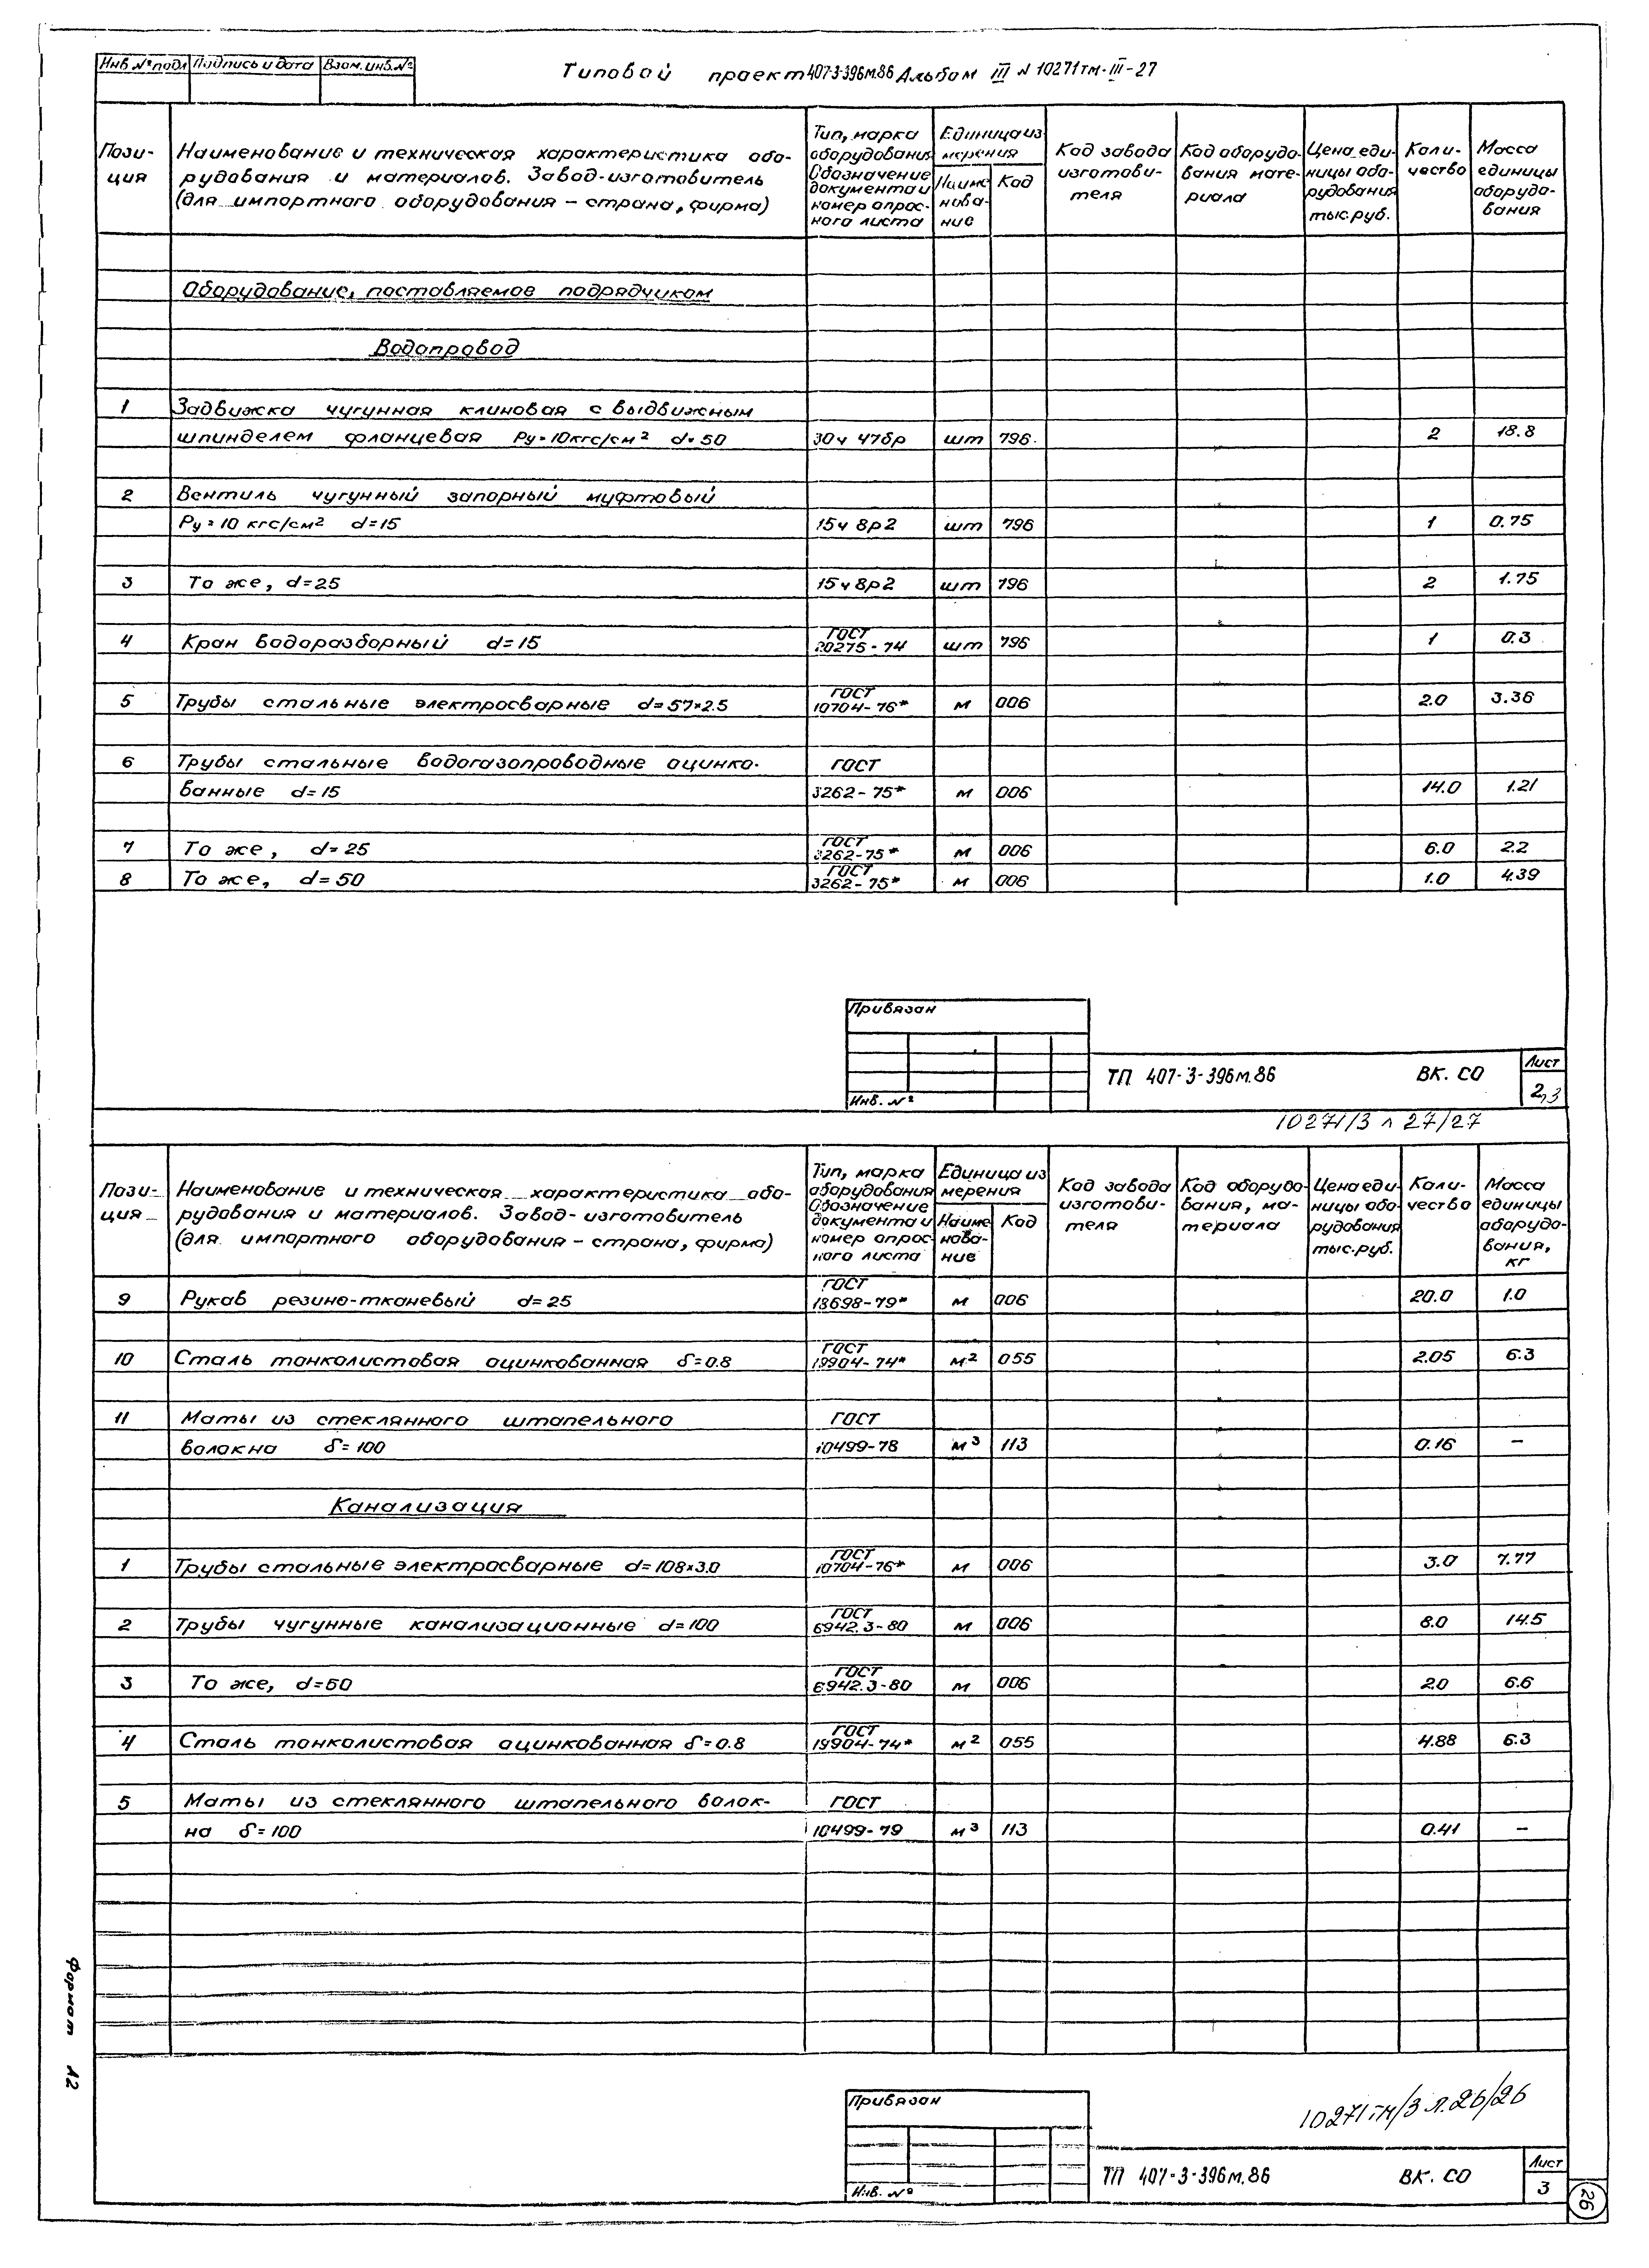 Инв. № подл. Подпись и дата Взам. инв. №
Типовой проект 407-3-396м.86 Альбом III N 10271тм-III-27
Пози-
ция
Наименование и техническая характеристика обо-
рудования и материалов. Завод-изготовитель
(для импортного оборудования – страна, фирма)
Тип, марка
оборудования
Обозначение
документа и
номер опрос-
ного листа
Единица из
мерения
Наиме
нова-
ние
Код
Код завода
изготови-
теля
Код оборудо-
вания мате-
риала
Цена еди-
ницы обо-
рудования
тыс.руб.
Коли-
чество
Масса
единицы
оборудо-
вания
Оборудование, поставляемое подрядчиком
Водопровод
1 Задвижка чугунная клиновая с выдвижным
шпинделем фланцевая Ру=10кгс/см² d=50 30ч 47бр шт 796 2 18.8
2 Вентиль чугунный запорный муфтовый
Ру=10 кгс/см² d=15 15ч 8р2 шт 796 1 0.75
3 То же, d=25 15ч 8р2 шт 796 2 1.75
4 Кран водоразборный d=15 ГОСТ 20275-74 шт 796 1 0.3
5 Трубы стальные электросварные d=57×2.5 ГОСТ 10704-76* м 006 2.0 3.36
6 Трубы стальные водогазопроводные оцинко- ГОСТ
ванные d=15 3262-75* м 006 14.0 1.21
7 То же, d=25 ГОСТ 3262-75* м 006 6.0 2.2
8 То же, d=50 ГОСТ 3262-75* м 006 1.0 4.39
Привязан
Инв. №
ТП 407-3-396м.86 ВК. СО
Лист
2,3
10271/3 л 27/27
Пози-
ция
Наименование и техническая характеристика обо-
рудования и материалов. Завод-изготовитель
(для импортного оборудования – страна, фирма)
Тип, марка
оборудования
Обозначение
документа и
номер опрос-
ного листа
Единица из
мерения
Наиме
нова-
ние
Код
Код завода
изготови-
теля
Код оборудо-
вания, ма-
териала
Цена еди-
ницы обо-
рудования
тыс.руб.
Коли-
чество
Масса
единицы
оборудо-
вания,
кг
9 Рукав резино-тканевый d=25 ГОСТ 18698-79* м 006 20.0 1.0
10 Сталь тонколистовая оцинкованная δ=0.8 ГОСТ 19904-74* м² 055 2.05 6.3
11 Маты из стеклянного штапельного ГОСТ
волокна δ=100 10499-78 м³ 113 0.16 –
Канализация
1 Трубы стальные электросварные d=108×3.0 ГОСТ 10704-76* м 006 3.0 7.77
2 Трубы чугунные канализационные d=100 ГОСТ 6942.3-80 м 006 8.0 14.5
3 То же, d=50 ГОСТ 6942.3-80 м 006 2.0 6.6
4 Сталь тонколистовая оцинкованная δ=0.8 ГОСТ 19904-74* м² 055 4.88 6.3
5 Маты из стеклянного штапельного волок- ГОСТ
на δ=100 10499-79 м³ 113 0.41 –
Формат А2
Привязан
Инв. №
10271тм/3 л.26/26
ТП 407-3-396м.86 ВК. СО
Лист
3
26